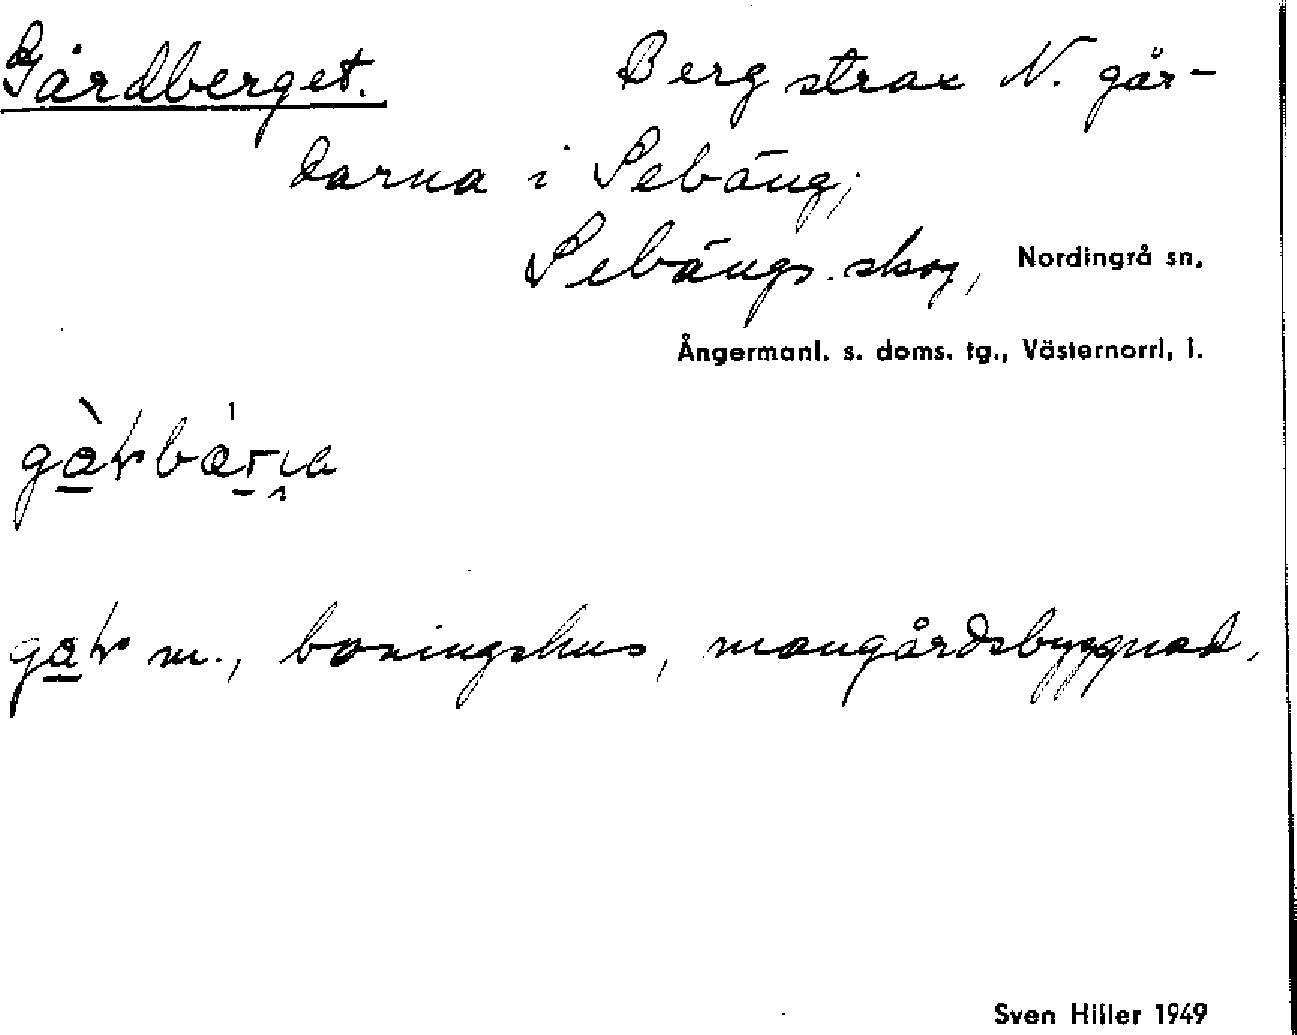 Gårdberget. Berg strax N. går-
darna i Sebäng;
Sebängs skog, Nordingrå sn,
Ångermanl. s. doms. tg., Västernorrl. l.
m., boningshus, mangårdsbyggnad.
Sven Hiller 1949